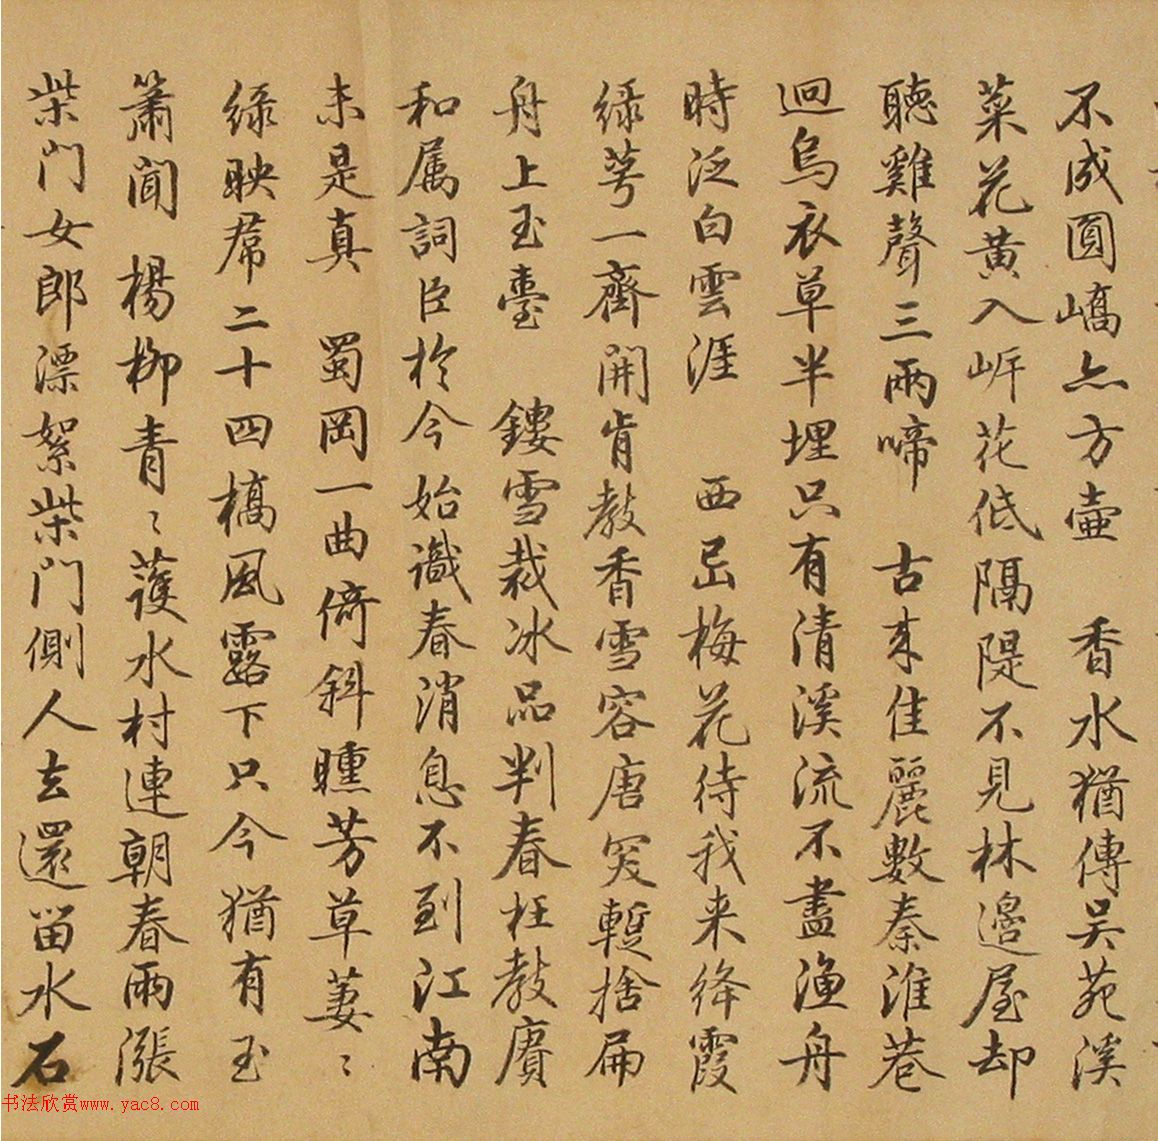 不成圓嶠亦方壺 香水猶傳吳苑溪
菜花黃入岸花低隔隄不見林邊屋却
聽雞聲三兩啼 古來佳麗數秦淮巷
迴烏衣草半埋只有清溪流不盡漁舟
時泛白雲涯 西岊梅花待我来絳霞
緑萼一齊開肯教香雪容唐突暫捨扁
舟上玉臺 鏤雪裁冰品判春枉教賡
和属詞臣於今始識春消息不到江南
未是真 蜀岡一曲倚斜曛芳草萋〻
緑映帬二十四橋風露下只今猶有玉
簫聞 楊柳青〻護水村連朝春雨漲
柴門女郎漂絮柴門側人去還留水石
书法欣赏www.yac8.com